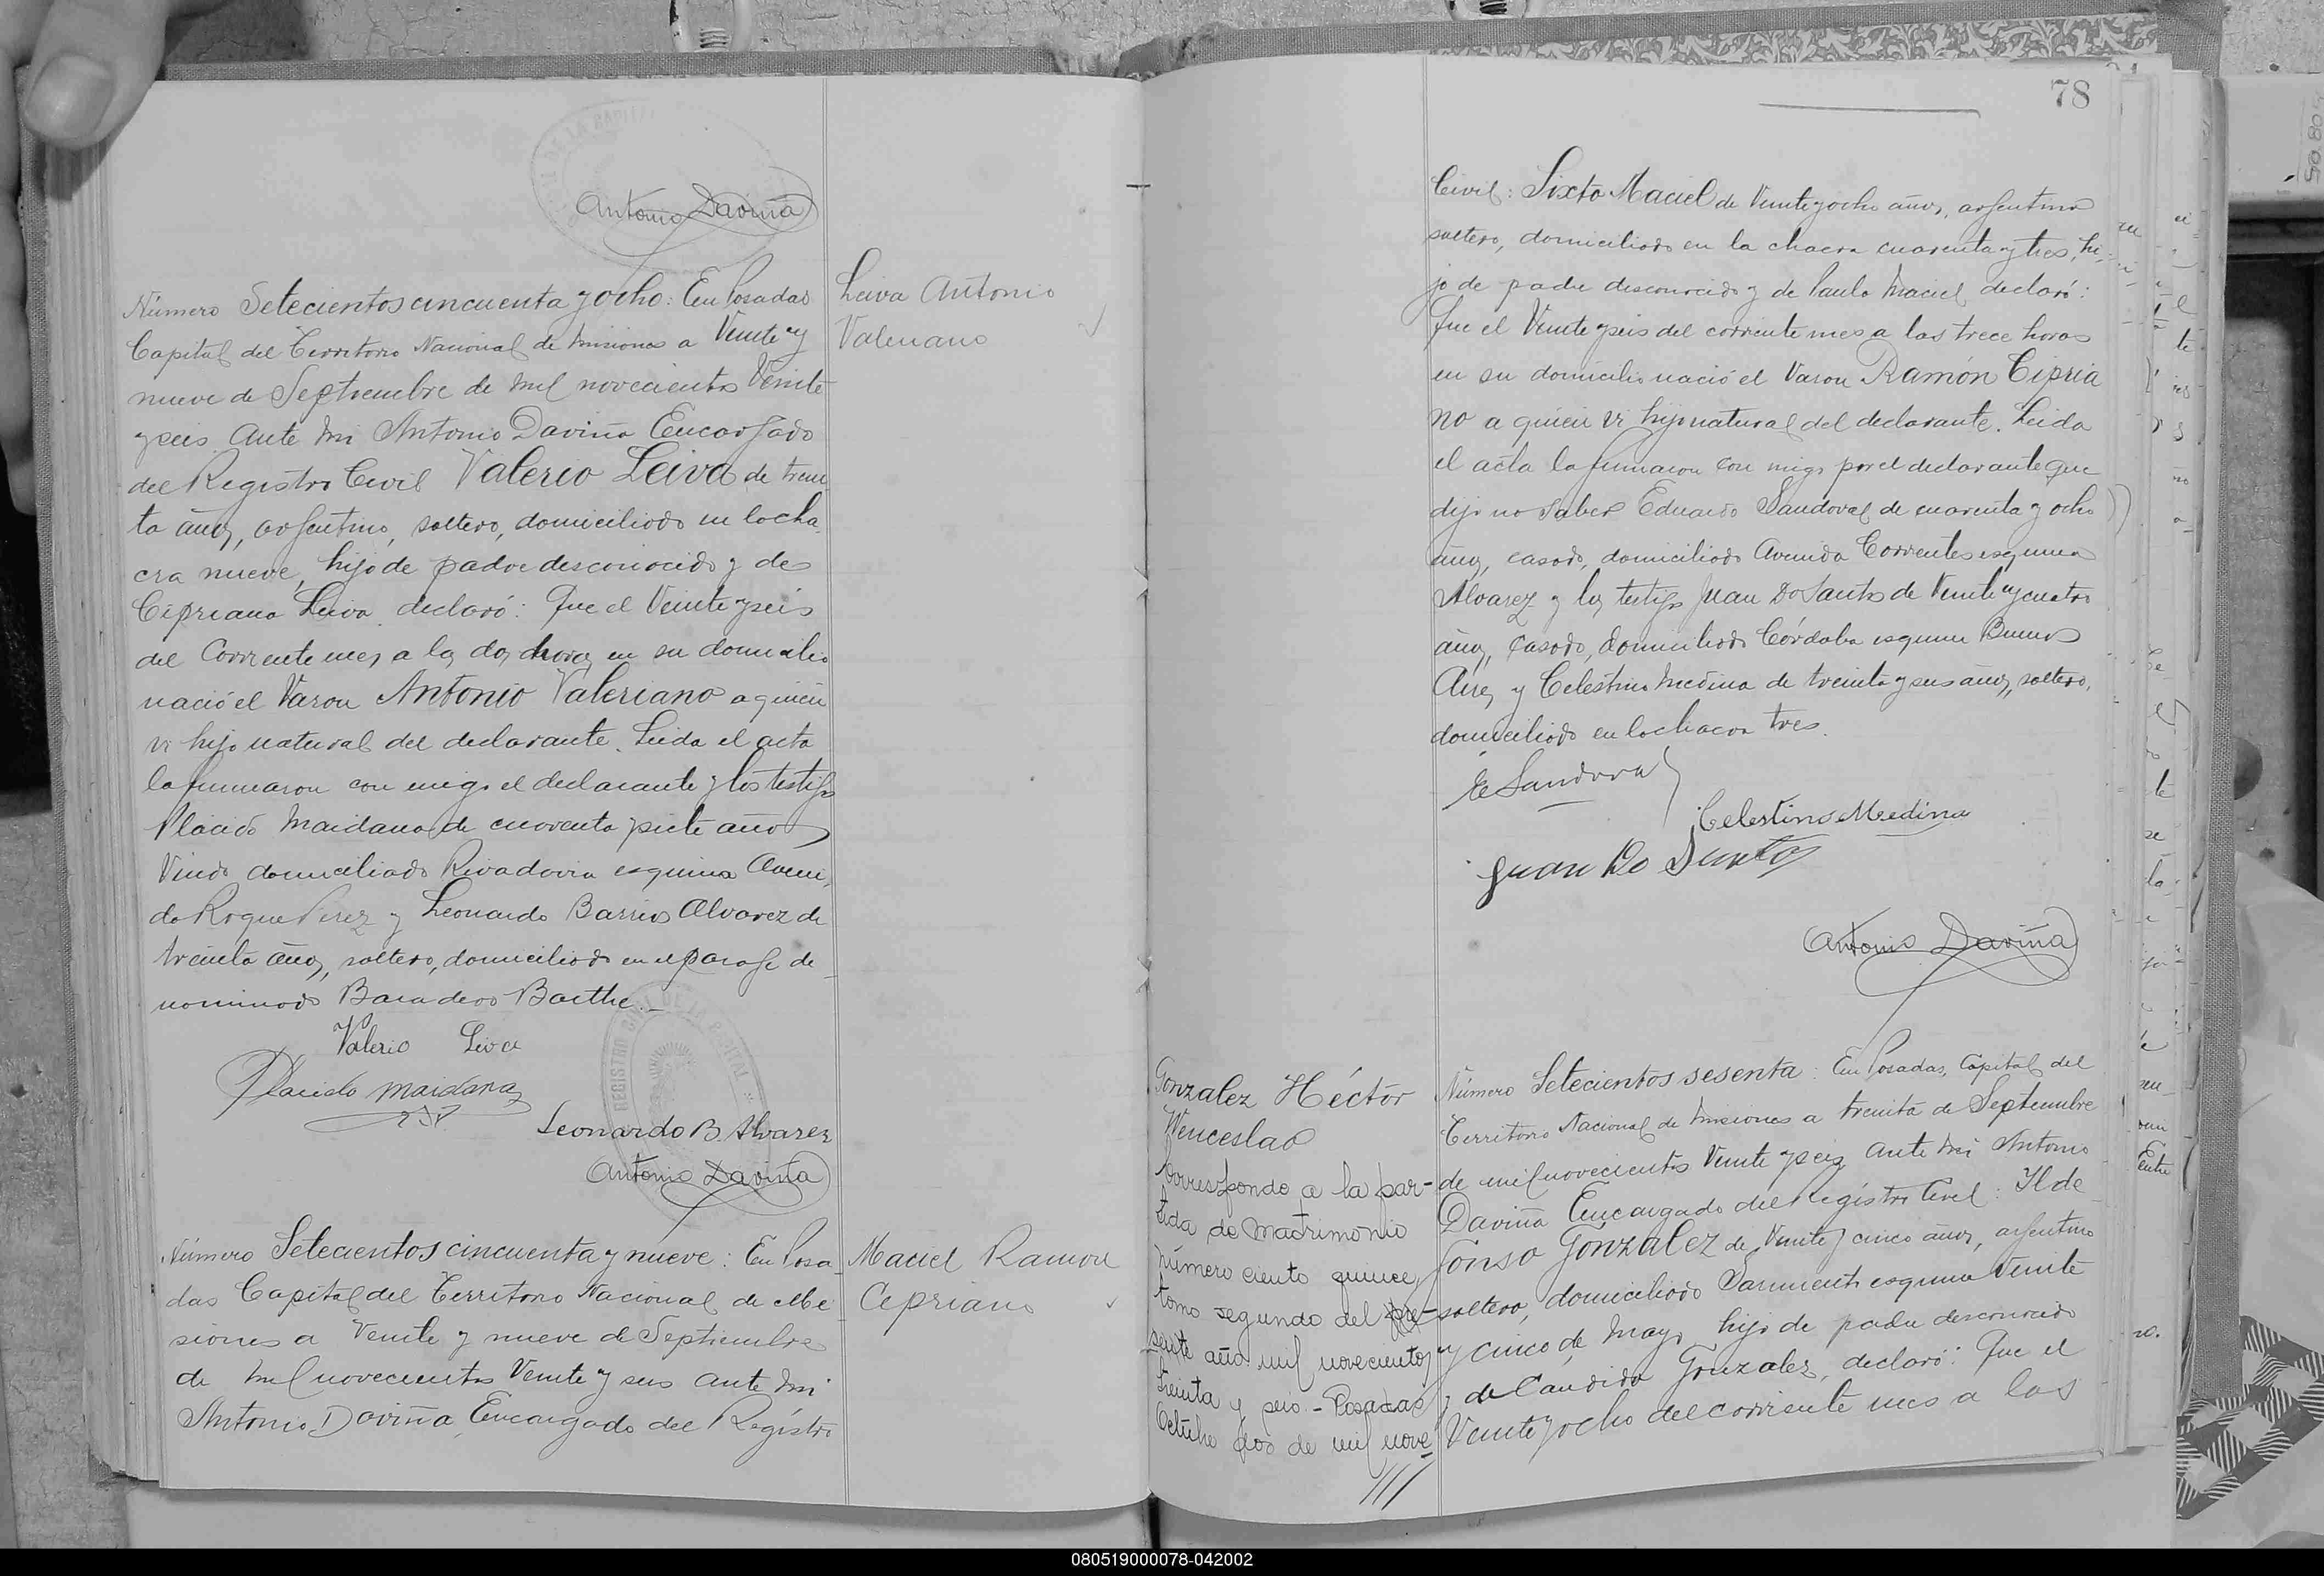 Antonio Daviña
Número Setecientos cincuenta y ocho: En Posadas
Capital del Territorio Nacional de Misiones a Veinte y
nueve de Septiembre de mil novecientos Veinte
y seis Ante mi Antonio Daviña Encargado
del Registro Civil Valerio Leiva de trein
ta años, argentino, soltero, domiciliado en la cha
cra nueve, hijo de padre desconocido y de
Cipriana Leiva declaró: Que el Veinte y seis
del Corriente mes, a las dos horas en su domicilio
nació el Varon Antonio Valeriano a quien
vi hijo natural del declarante. Leida el acta
la firmaron con migo el declarante y los testigos
Plácido Maidana de cuarenta y siete años
Viudo domiciliado Rivadavia esquina Aveni
da Roque Perez y Leonardo Barrios Alvarez de
treinta años, soltero, domiciliado en el paraje de
nominado Baradero Barthe.
Valerio Leiva
Placido Maidana
Leonardo B Alvarez
Antonio Daviña
Leiva Antonio
Valeriano
Número Setecientos cincuenta y nueve: En Posa
das Capital del Territorio Nacional de Mi
siones a Veinte y nueve de Septiembre
de mil novecientos Veinte y seis Ante mi
Antonio Daviña Encargado del Registro
Maciel Ramon
Cipriano
78
Civil: Sixto Maciel de Veinte y ocho años, argentino
soltero, domiciliado en la chacra cuarenta y tres, hi
jo de padre desconocido y de Paula Maciel declaró:
Que el Veinte y seis del corriente mes a las trece horas
en su domicilio nació el Varon Ramón Cipria
no a quien vi hijo natural del declarante. Leida
el acta la firmaron con migo por el declarante que
dijo no saber Eduardo Sandoval de cuarenta y ocho
años, casado, domiciliado Avenida Corrientes esquina
Alvarez y los testigos Juan Do Santos de Veinte y cuatro
años, casado, domiciliado Córdoba esquina Buenos
Aires y Celestino Medina de treinta y seis años, soltero,
domiciliado en la chacra tres.
E Sandoval
Celestino Medina
Juan Do Santos
Antonio Daviña
Gonzalez Héctor
Wenceslao
Corresponde a la par-
tida de matrimonio
número ciento quince
tomo segundo del pre-
sente año mil novecientos
treinta y seis - Posadas
Octubre dos de mil nove
Número Setecientos sesenta: En Posadas, Capital del
Territorio Nacional de Misiones a treinta de Septiembre
de mil novecientos Veinte y seis Ante mi Antonio
Daviña Encargado del Registro Civil: Ilde
fonso Gonzalez de Veinte y cinco años, argentino
soltero, domiciliado Sarmiento esquina Veinte
y cinco de Mayo, hijo de padre desconocido
y de Candida Gonzalez, declaró: Que el
Veinte y ocho del corriente mes a las
080519000078-042002